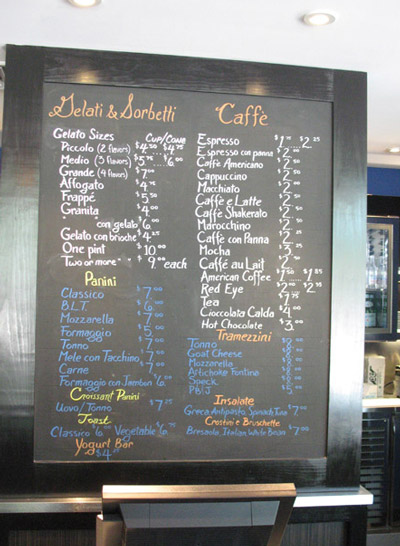 Gelati & Sorbetti
Gelato Sizes Cup/Cone
Piccolo (2 flavors) $4.50 $4.75
Medio (3 flavors) $5.75 $6.00
Grande (4 flavors) $7.00
Affogato $4.75
Frappé $5.50
Granita $4.00
con gelato $6.00
Gelato con brioche $4.25
One pint $10.00
Two or more $9.00 each
Panini
Classico $7.00
B.L.T. $6.00
Mozzarella $7.00
Formaggio $5.00
Tonno $7.00
Mele con Tacchino $7.00
Carne $7.00
Formaggio con Jambon
Croissant Panini
Uovo/Tonno $7.25
Toast
Classico Vegetable
Yogurt Bar
$4.25
Caffè
Espresso
Espresso con panna
Caffè Americano
Cappuccino
Macchiato
Caffè e Latte
Caffè Shakerato
Marocchino
Caffè con Panna
Mocha
Caffé au Lait
American Coffee
Red Eye
Tea
Cioccolata Calda
Hot Chocolate $3.00
Tramezzini
Tonno
Goat Cheese
Mozzarella
Artichoke Fontina
Speck
PB/J
Insalate
Greca Antipasto Spinach Tuna $7.00
Crostini e Bruschette
Bresaola, Italian, White Bean $7.00